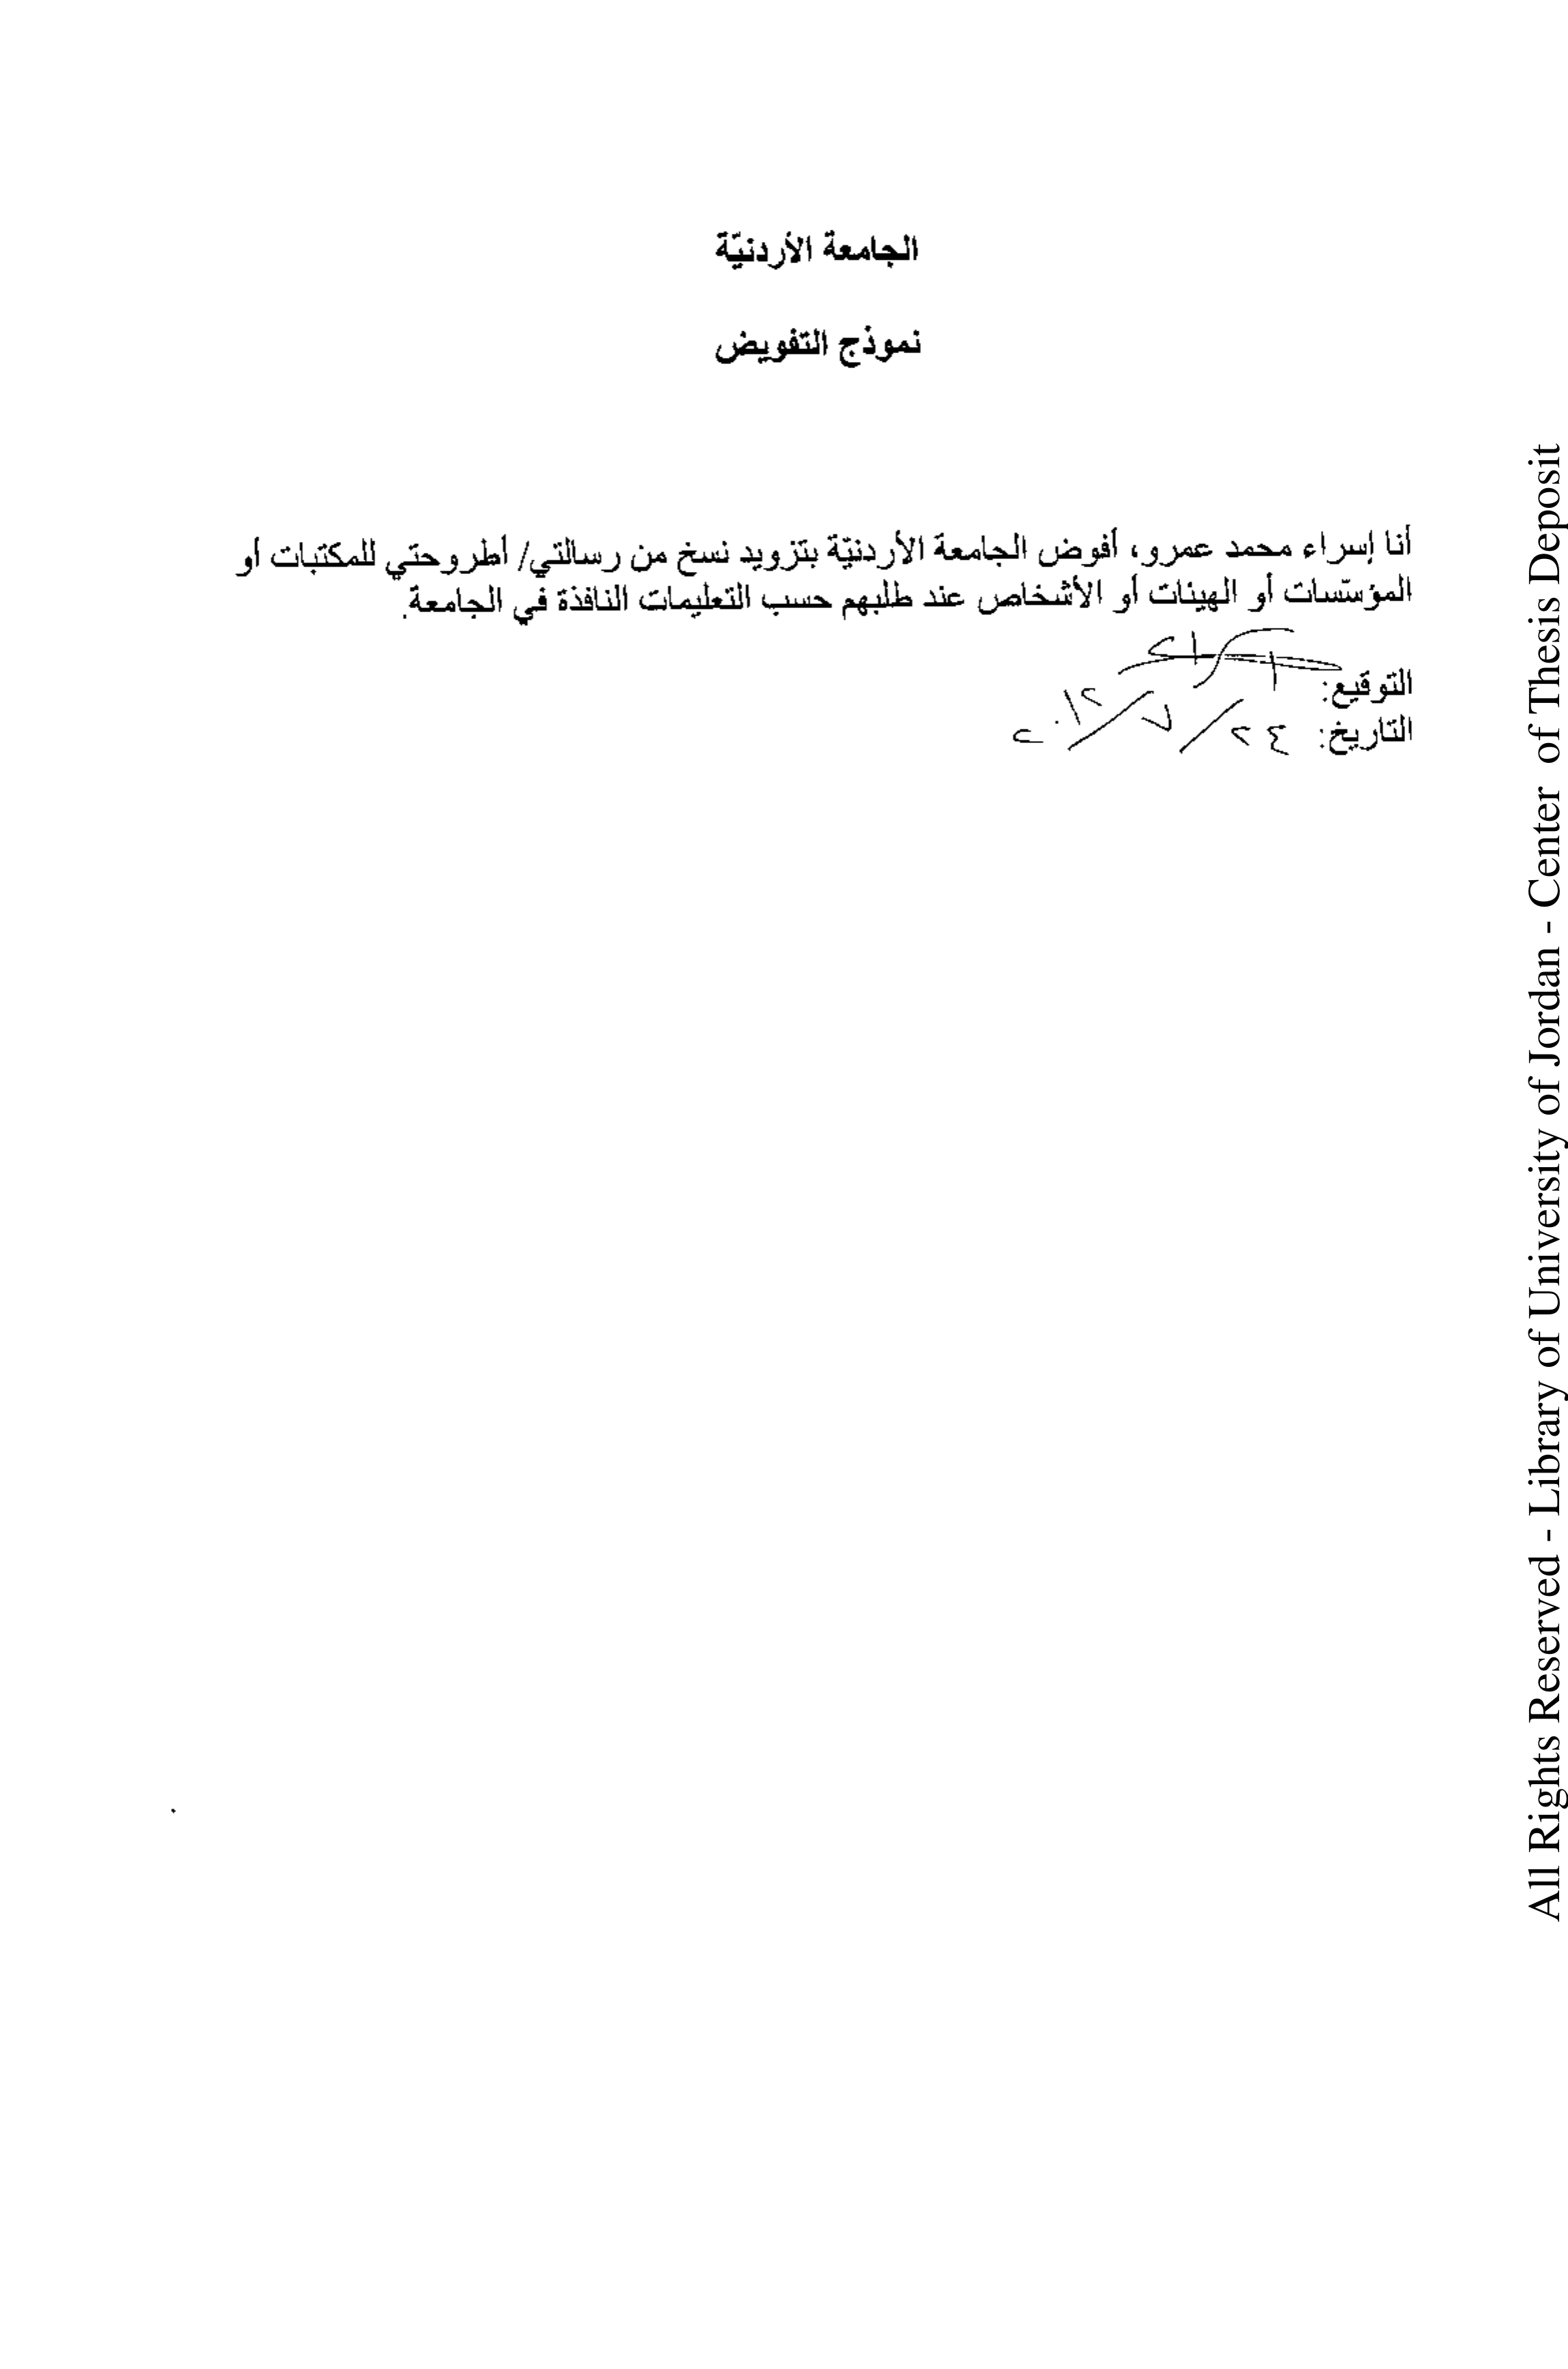 الجامعة الأردنيّة
نموذج التفويض
أنا إسراء محمد عمرو، أفوض الجامعة الأردنيّة بتزويد نسخ من رسالتي/ أطروحتي للمكتبات أو
المؤسّسات أو الهيئات أو الأشخاص عند طلبهم حسب التعليمات النافذة في الجامعة.
التوقيع:
التاريخ: ٢٤/٧/٢٠١٢
All Rights Reserved - Library of University of Jordan - Center of Thesis Deposit